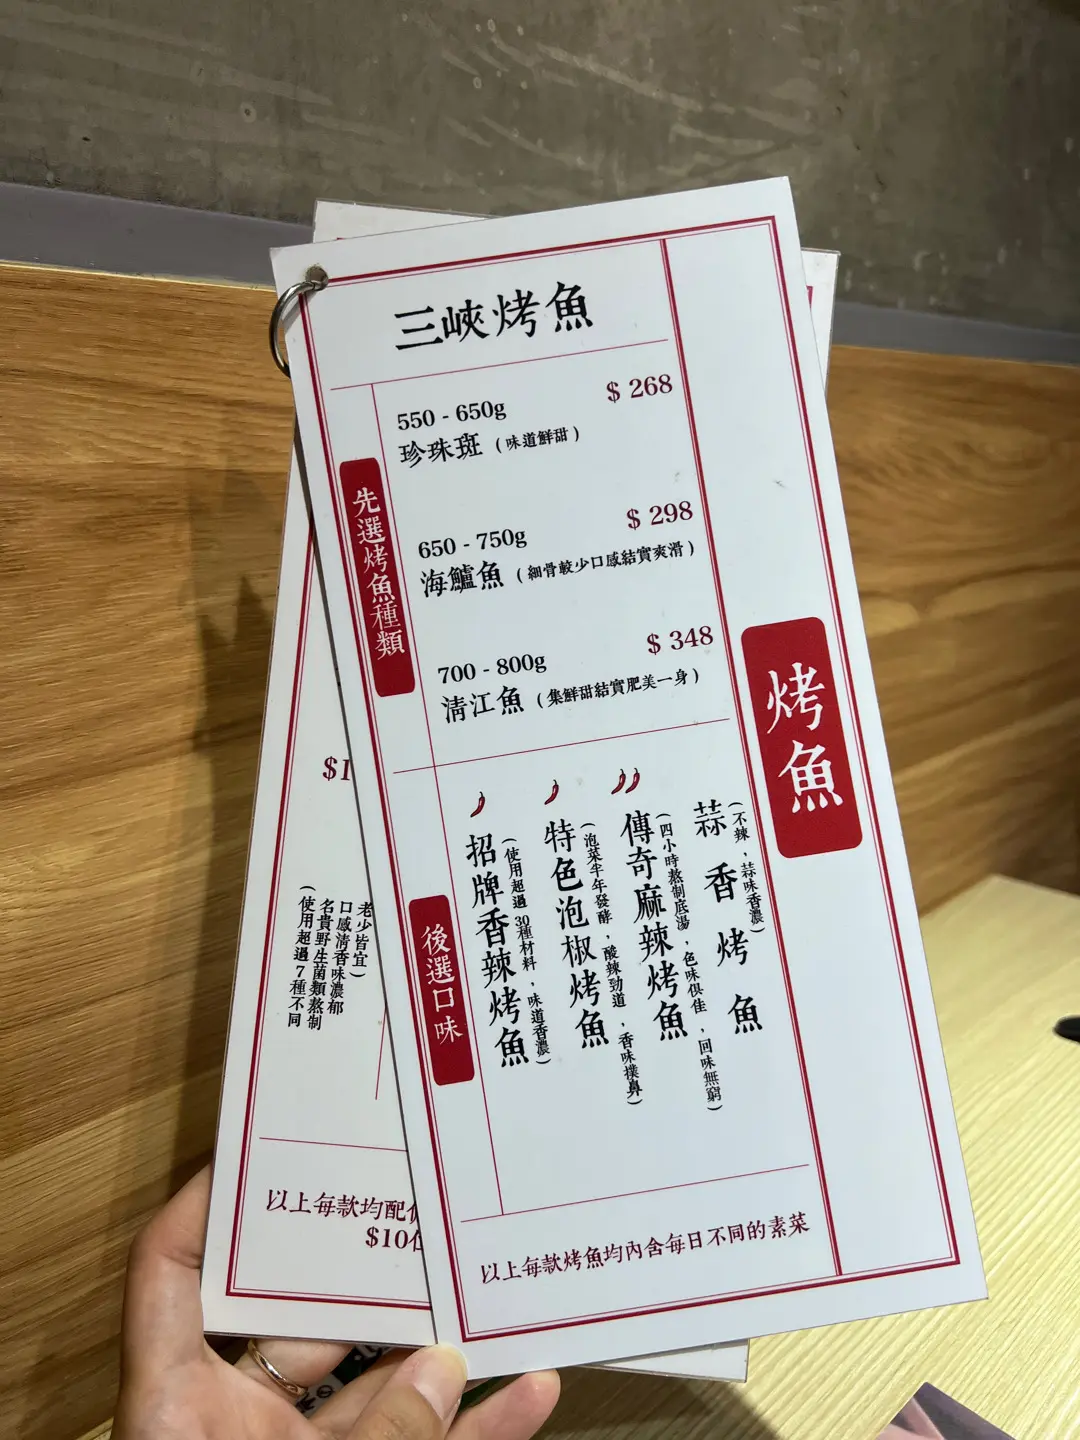 三峽烤魚
先選烤魚種類
550 - 650g
$ 268
珍珠斑 (味道鮮甜)
650 - 750g
$ 298
海鱸魚 (細骨較少口感結實爽滑)
700 - 800g
$ 348
清江魚 (集鮮甜結實肥美一身)
烤魚
後選口味
蒜香烤魚
(不辣，蒜味香濃)
傳奇麻辣烤魚
(四小時熬制底湯，色味俱佳，回味無窮)
特色泡椒烤魚
(泡菜半年發酵，酸辣勁道，香味撲鼻)
招牌香辣烤魚
(使用超過30種材料，味道香濃)
以上每款烤魚均內含每日不同的素菜
$1
老少皆宜)
口感清香味濃郁
名貴野生菌類熬制
(使用超過7種不同
以上每款均配
$10